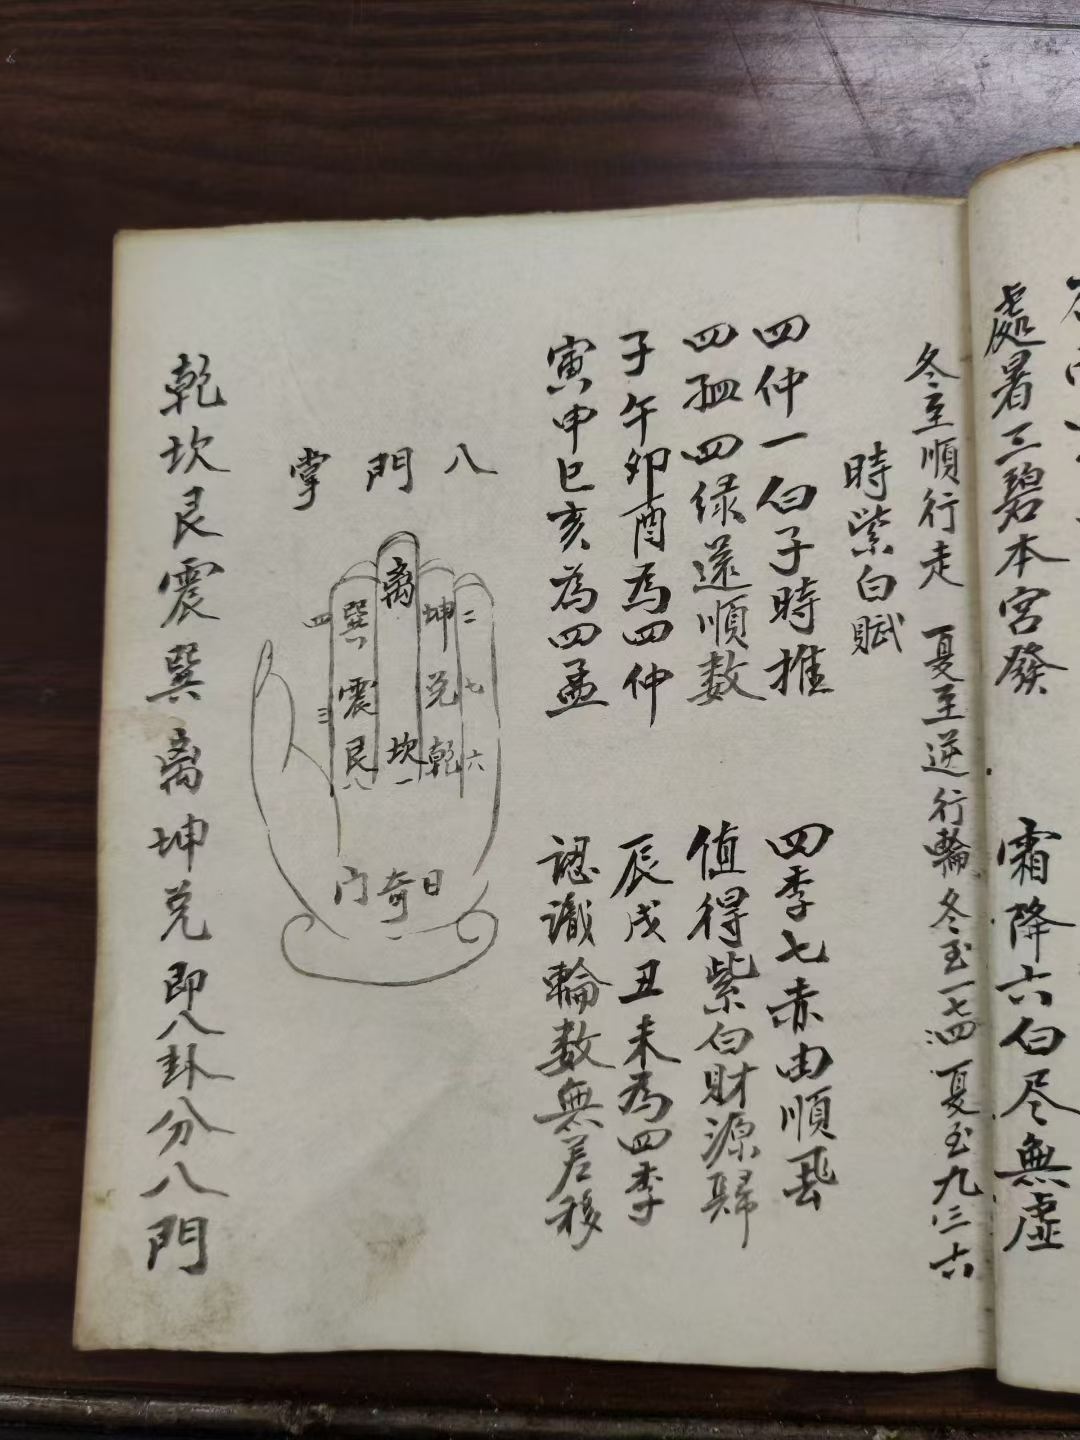 處暑三碧本宮發　霜降六白尽無虛
冬至順行走　夏至逆行輪　冬至一七四　夏至九三六
時紫白賦
四仲一白子時推　四季七赤由順飛
四孟四绿還順数　值得紫白財源歸
子午卯酉為四仲　辰戌丑未為四季
寅申巳亥為四孟　認識輪数無差移
八門掌
离
巽　坤
四　二
震　兑
三　七
艮　坎　乾
八　一　六
日奇门
乾坎艮震巽离坤兑即八卦分八門